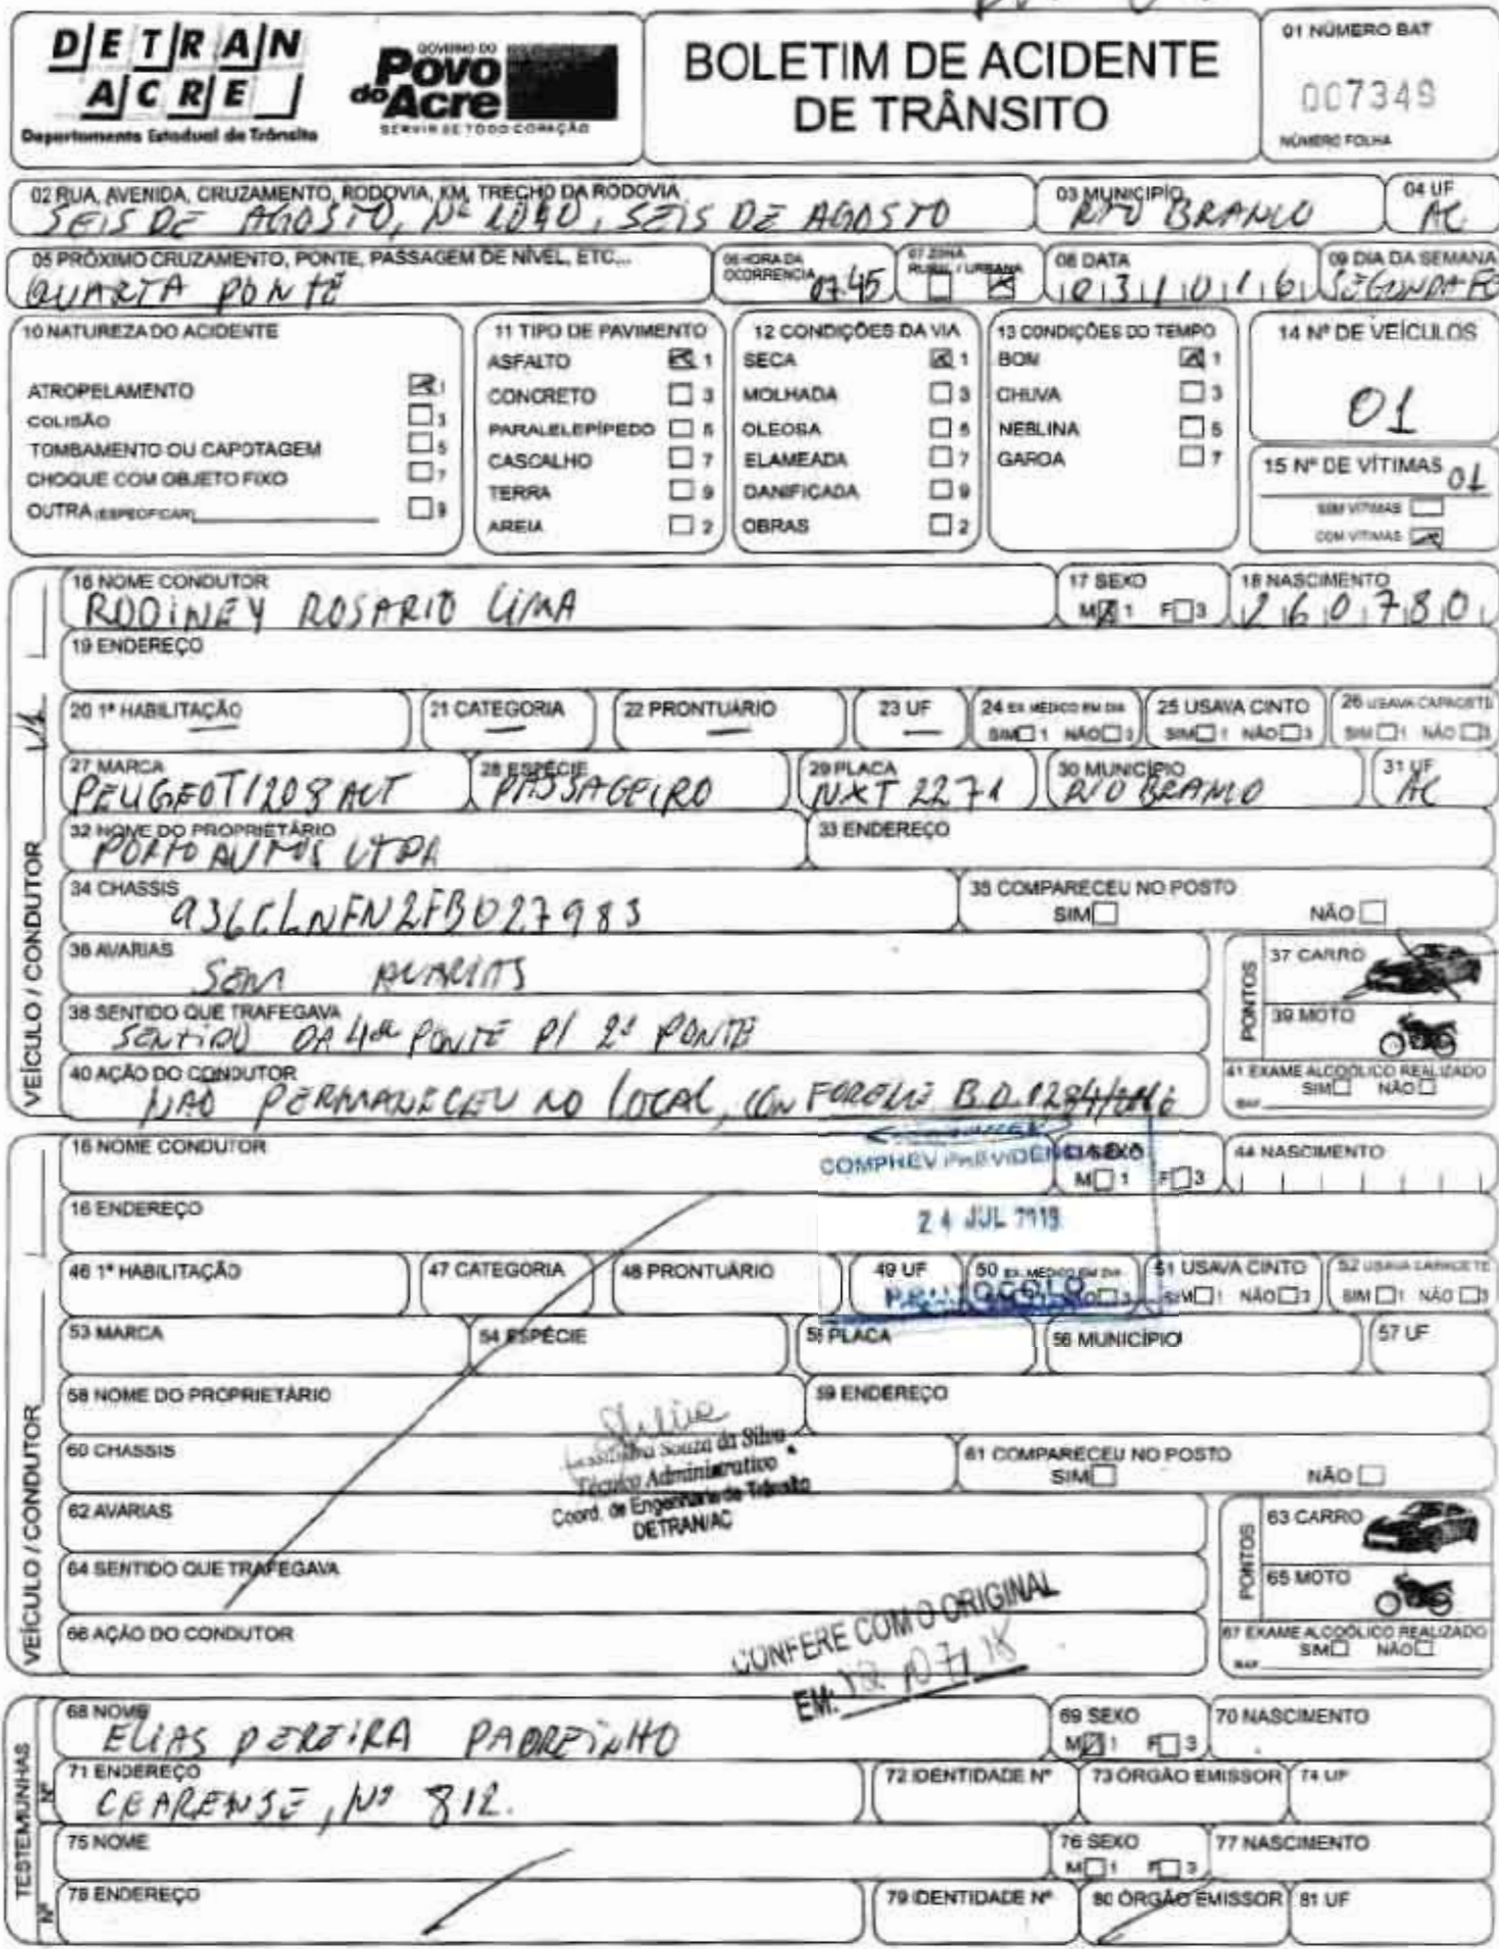 DETRAN
ACRE
Departamento Estadual de Trânsito
GOVERNO DO
Povo
do Acre
SERVIR DE TODO CORAÇÃO
BOLETIM DE ACIDENTE
DE TRÂNSITO
01 NÚMERO BAT
007349
NÚMERO FOLHA
02 RUA, AVENIDA, CRUZAMENTO, RODOVIA, KM, TRECHO DA RODOVIA
SEIS DE AGOSTO, Nº SEIS DE AGOSTO
03 MUNICIPÍO
RIO BRANCO
04 UF
AC
05 PRÓXIMO CRUZAMENTO, PONTE, PASSAGEM DE NÍVEL, ETC...
QUARTA PONTE
06 HORA DA OCORRÊNCIA
07:45
07 ZONA
RURAL / URBANA
08 DATA
03 10 16
09 DIA DA SEMANA
SEGUNDA FE
10 NATUREZA DO ACIDENTE
ATROPELAMENTO 1
COLISÃO 3
TOMBAMENTO OU CAPOTAGEM 5
CHOQUE COM OBJETO FIXO 7
OUTRA (ESPECIFICAR) 9
11 TIPO DE PAVIMENTO
ASFALTO 1
CONCRETO 3
PARALELEPÍPEDO 5
CASCALHO 7
TERRA 9
AREIA 2
12 CONDIÇÕES DA VIA
SECA 1
MOLHADA 3
OLEOSA 5
ELAMEADA 7
DANIFICADA 9
OBRAS 2
13 CONDIÇÕES DO TEMPO
BOM 1
CHUVA 3
NEBLINA 5
GAROA 7
14 Nº DE VEÍCULOS
01
15 Nº DE VÍTIMAS 01
SEM VÍTIMAS
COM VÍTIMAS
VEÍCULO / CONDUTOR
16 NOME CONDUTOR
RODINEY ROSARIO LIMA
17 SEXO
M 1 F 3
18 NASCIMENTO
260780
19 ENDEREÇO
20 1ª HABILITAÇÃO
21 CATEGORIA
22 PRONTUÁRIO
23 UF
24 EX. MÉDICO EM DIA
SIM 1 NÃO 3
25 USAVA CINTO
SIM 1 NÃO 3
26 USAVA CAPACETE
SIM 1 NÃO 3
27 MARCA
PEUGEOT/208 ACT
28 ESPÉCIE
PASSAGEIRO
29 PLACA
NXT 2271
30 MUNICÍPIO
RIO BRANCO
31 UF
AC
32 NOME DO PROPRIETÁRIO
PORTO AUTOS LTDA
33 ENDEREÇO
34 CHASSIS
936CLNFN2FB027983
35 COMPARECEU NO POSTO
SIM NÃO
36 AVARIAS
SEM AVARIAS
PONTOS
37 CARRO
39 MOTO
38 SENTIDO QUE TRAFEGAVA
SENTIDO DA 4ª PONTE P/ 2ª PONTE
40 AÇÃO DO CONDUTOR
NÃO PERMANECEU NO LOCAL, CONFORME B.O. 1284/2016
41 EXAME ALCOÓLICO REALIZADO
SIM NÃO
VEÍCULO / CONDUTOR
16 NOME CONDUTOR
COMPREV PREVIDÊNCIA
SEXO
M 1 F 3
44 NASCIMENTO
16 ENDEREÇO
24 JUL
46 1ª HABILITAÇÃO
47 CATEGORIA
48 PRONTUÁRIO
49 UF
50 EX. MÉDICO EM DIA
PROTOCOLO
51 USAVA CINTO
SIM 1 NÃO 3
52 USAVA CAPACETE
SIM 1 NÃO 3
53 MARCA
54 ESPÉCIE
55 PLACA
56 MUNICÍPIO
57 UF
58 NOME DO PROPRIETÁRIO
59 ENDEREÇO
60 CHASSIS
Souza da Silva
Técnico Administrativo
Coord. de Engenharia de Trânsito
DETRAN/AC
61 COMPARECEU NO POSTO
SIM NÃO
62 AVARIAS
PONTOS
63 CARRO
65 MOTO
64 SENTIDO QUE TRAFEGAVA
66 AÇÃO DO CONDUTOR
67 EXAME ALCOÓLICO REALIZADO
SIM NÃO
CONFERE COM O ORIGINAL
EM: 18/07/18
TESTEMUNHAS
Nº
68 NOME
ELIAS PEREIRA PADREINHO
69 SEXO
M 1 F 3
70 NASCIMENTO
71 ENDEREÇO
CEARENSE, Nº 812.
72 IDENTIDADE Nº
73 ÓRGÃO EMISSOR
74 UF
Nº
75 NOME
76 SEXO
M 1 F 3
77 NASCIMENTO
78 ENDEREÇO
79 IDENTIDADE Nº
80 ÓRGÃO EMISSOR
81 UF